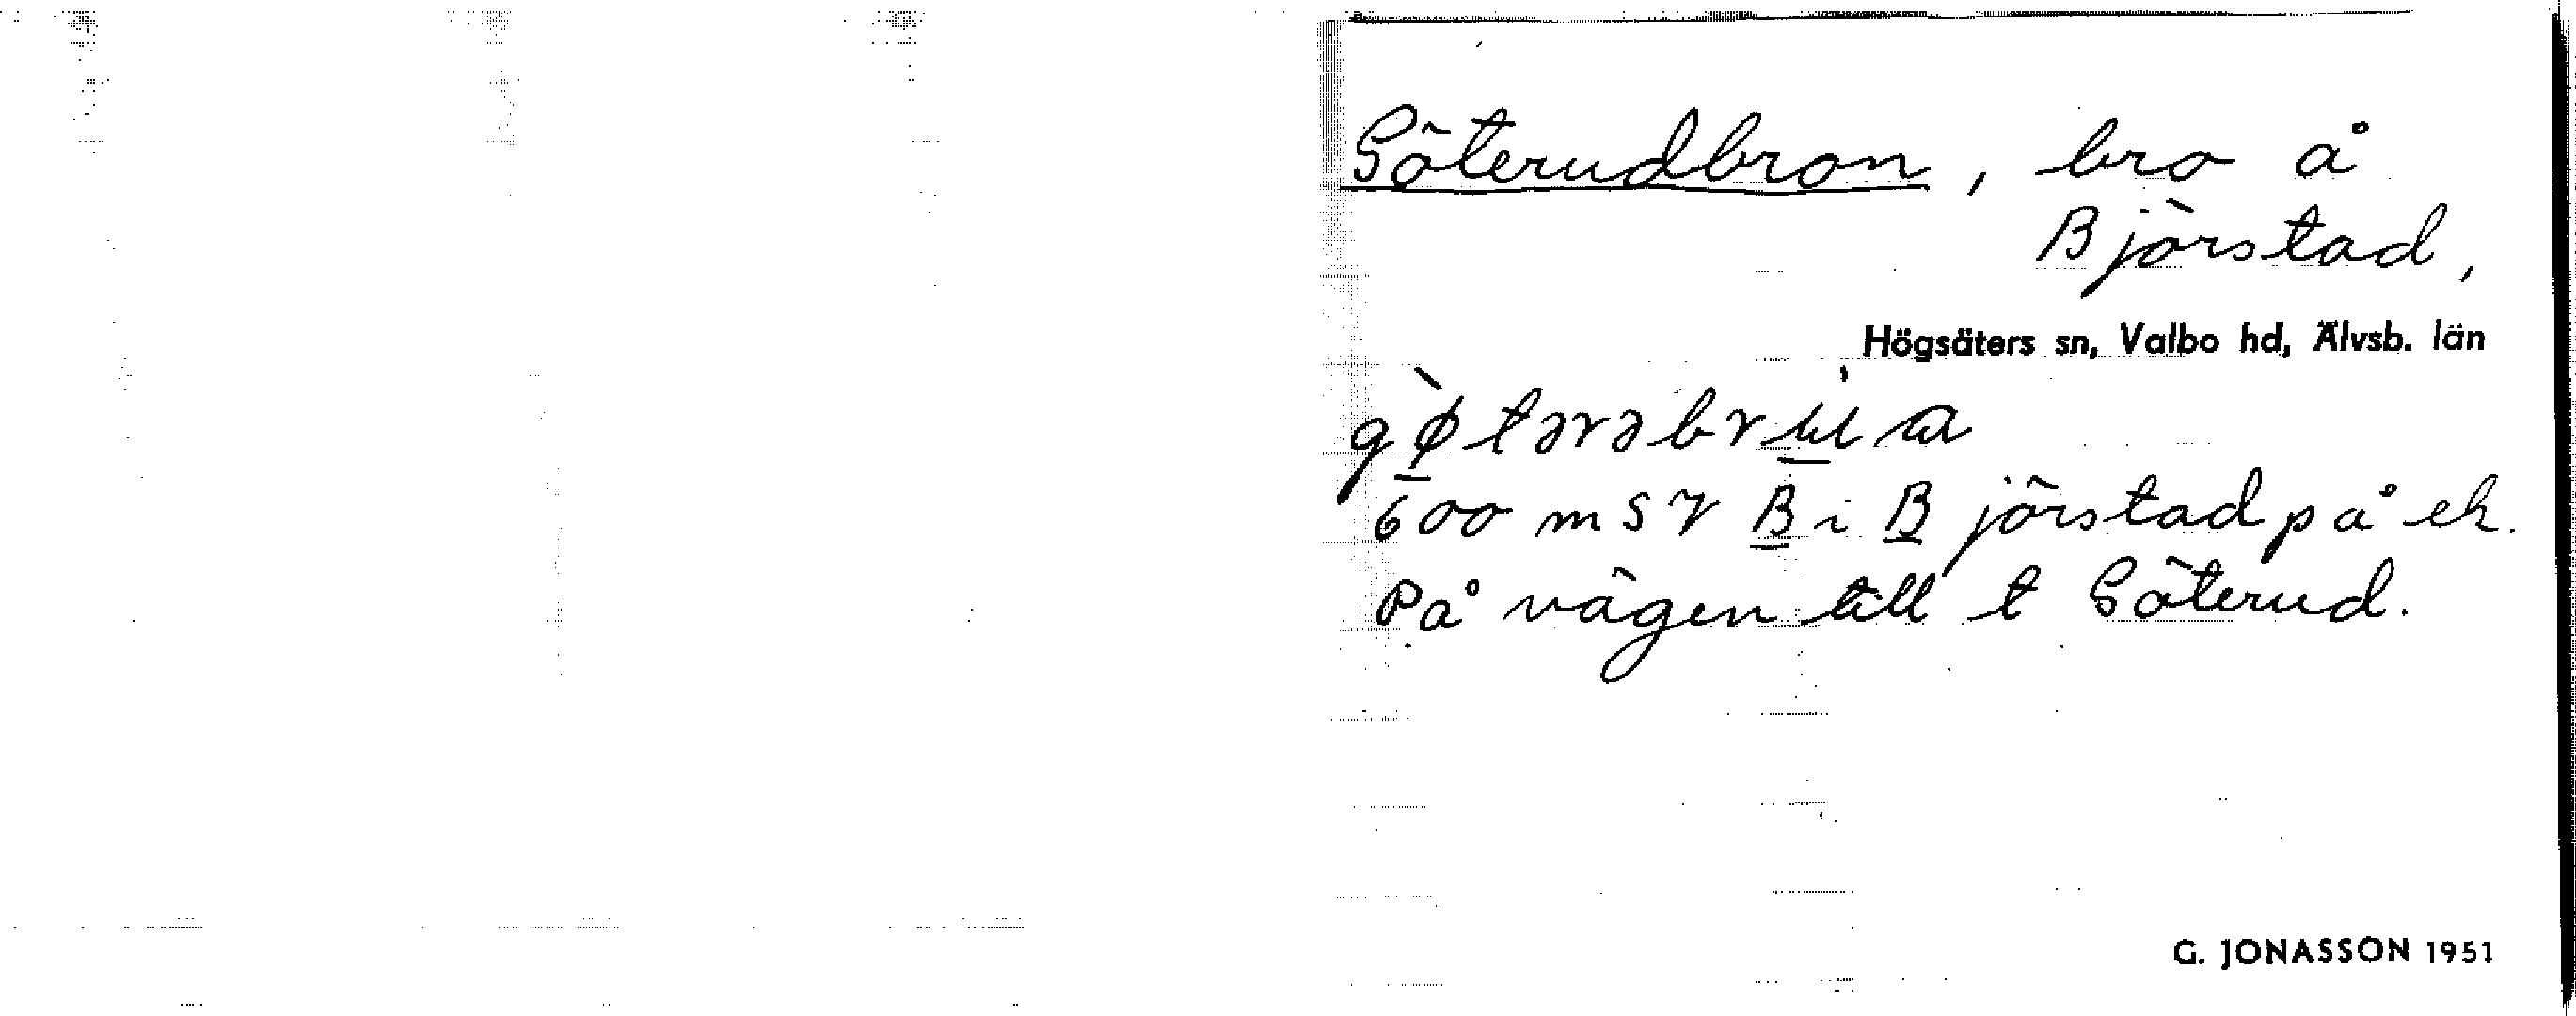 Göterudbron, bro å
Björstad,
Högsäters sn, Valbo hd, Älvsb. län
gø̀tərəbrúa
600 m SV B i Björstad på ek.
På vägen till t Göterud.
G. JONASSON 1951